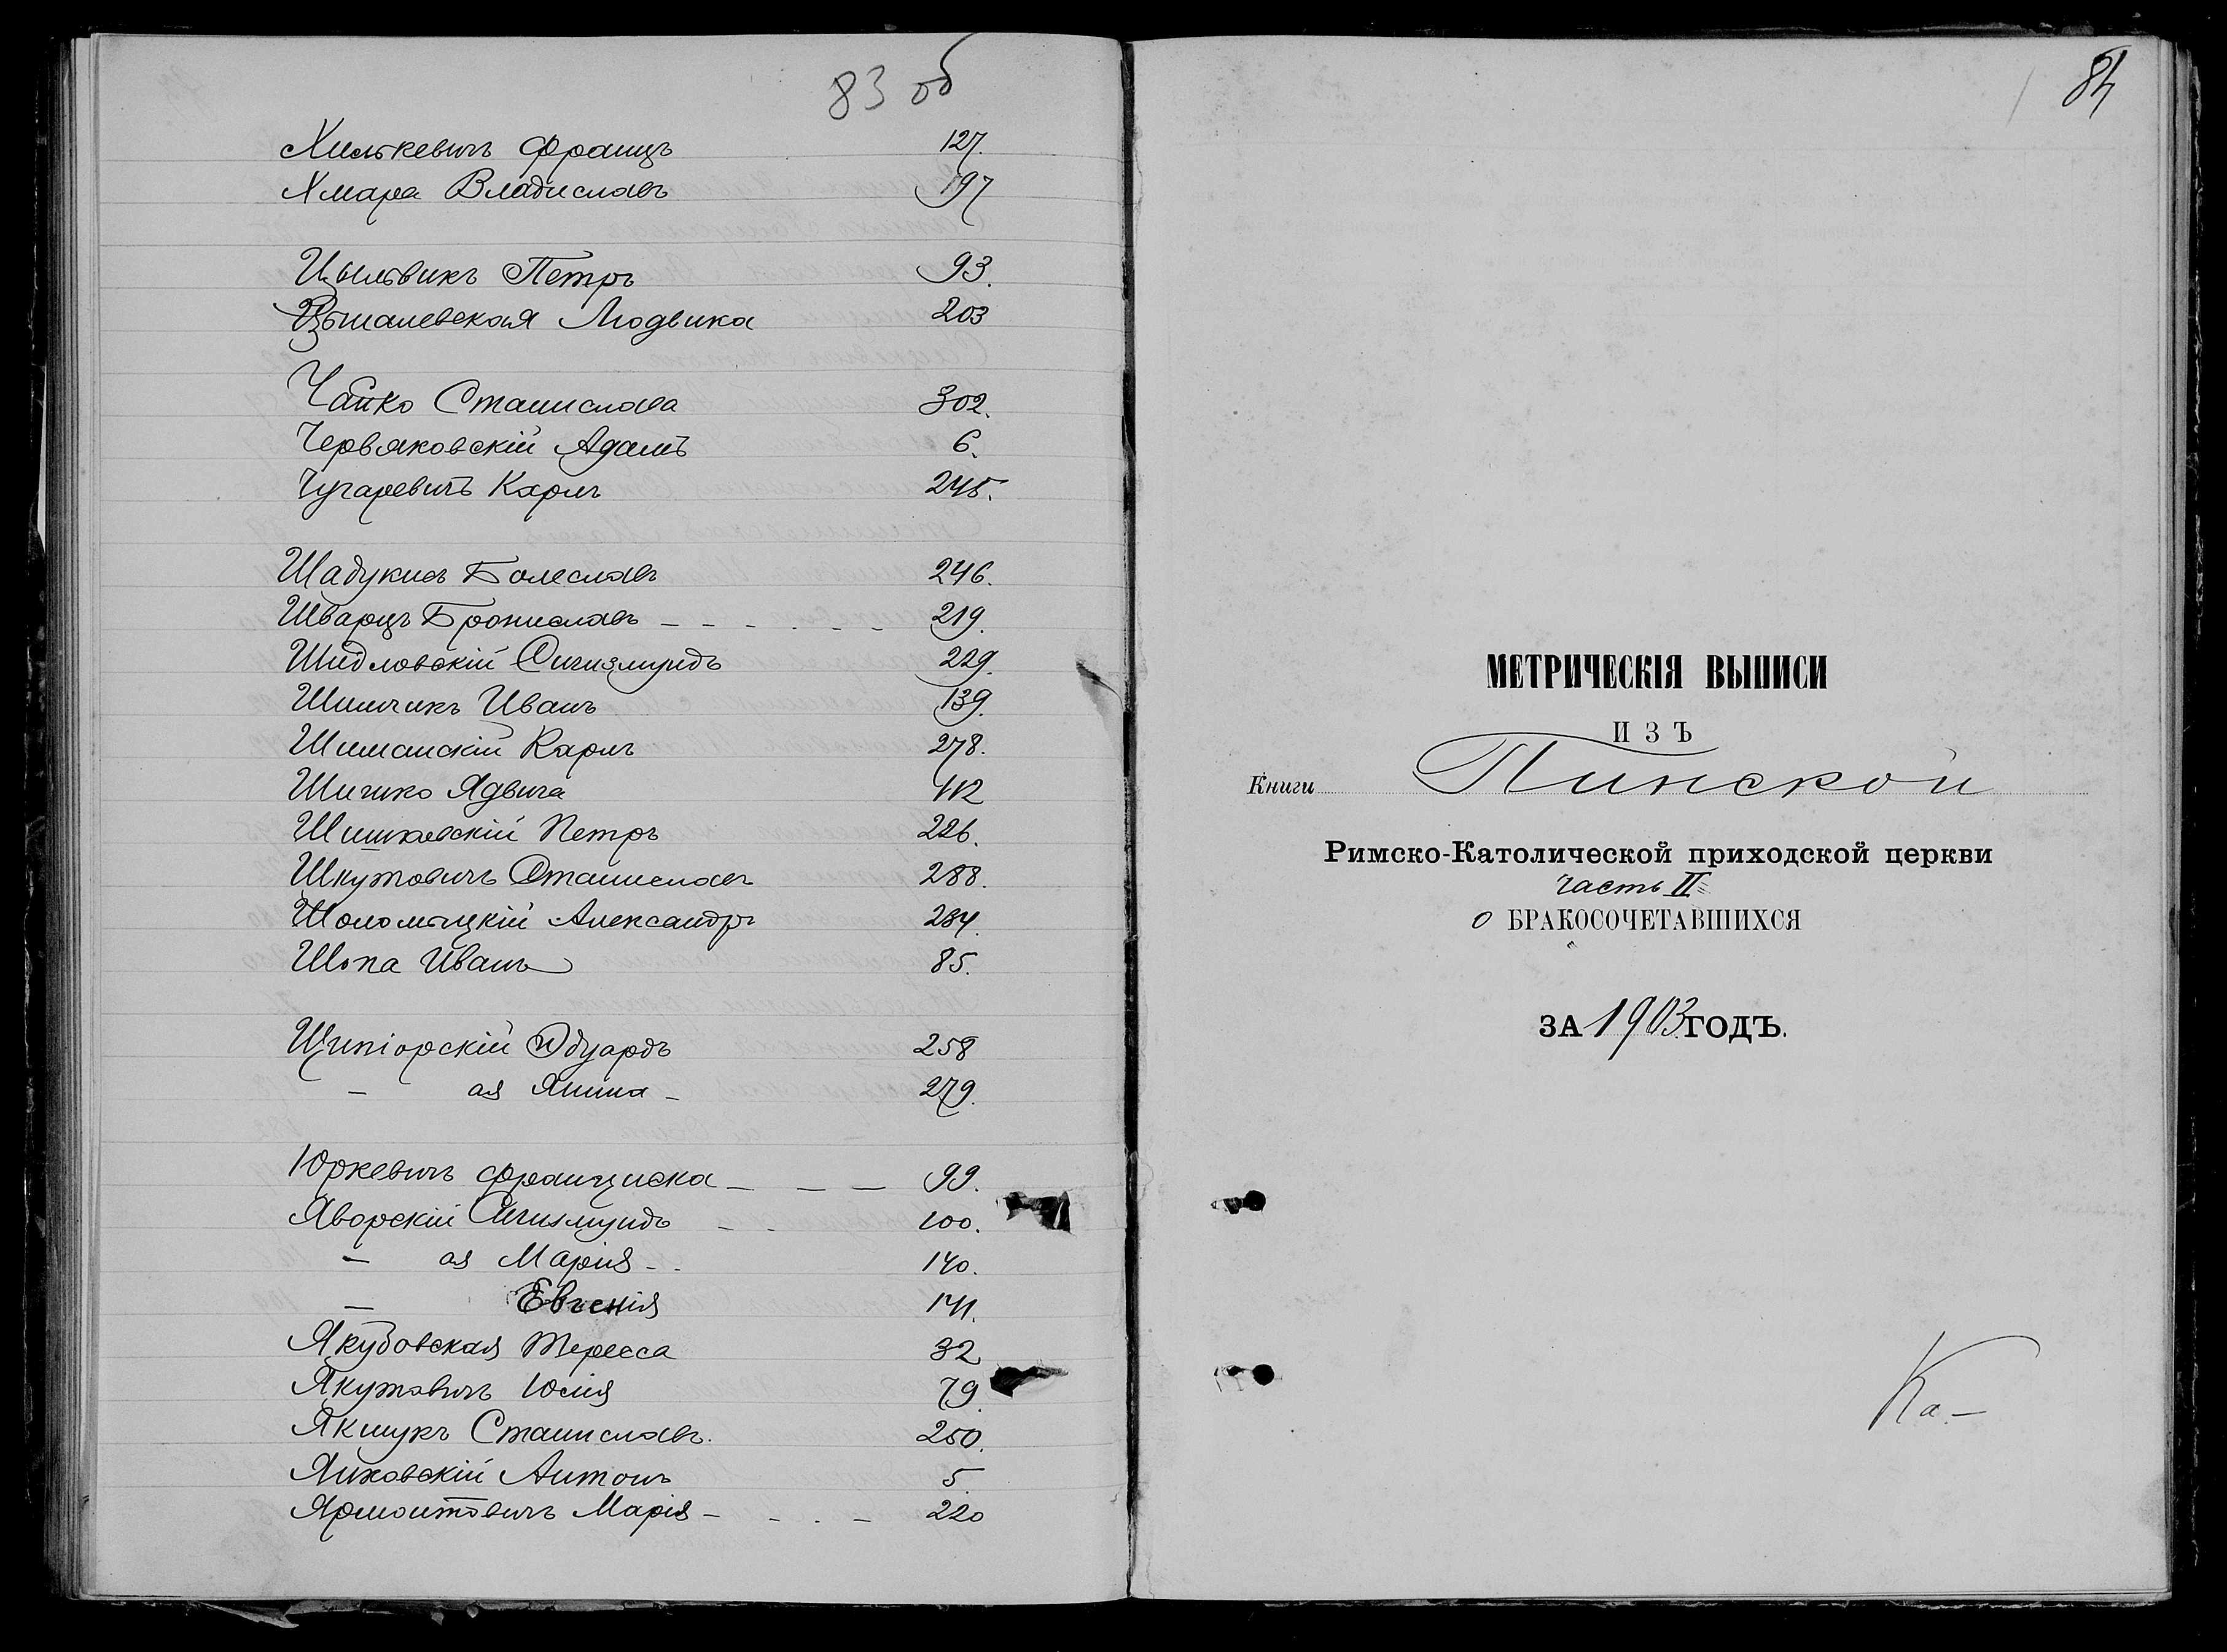 83 об
Хилькевичъ Францъ 127.
Хмара Владиславъ 197
Цыльвикъ Петръ 93.
Людвика 203
Чайко Станислава 302.
Червяковскій Адамъ 6.
Чугаревичъ Карлъ 245.
Шадукисъ Болеславъ 246.
Шварцъ Брониславъ - - - - - - 219.
Шидловскій Сигизмундъ 229.
Шимчикъ Иванъ 139.
Шиманскій Карлъ 278.
Ядвига 112
Шишковскій Петръ 226.
Шкутовичъ Станиславъ 288.
Шоломыцкій Александръ 234.
Шопа Иванъ 85.
Щипіорскій Эдуардъ 258
- ая Янина - 279.
Юркевичъ Франциска - - - 99.
Яворскій Сигизмундъ - - 100.
- ая Марія - - 140.
- Евгенія 141.
Якубовская Тересса 32
Якутовичъ Юлія 79.
Якшукъ Станиславъ. 250.
Янковскій Антонъ 5.
Ярмонтовичъ Марія - - - - 220
84
МЕТРИЧЕСКІЯ ВЫПИСИ
ИЗЪ
Книги Пинской
Римско-Католической приходской церкви
часть II
о БРАКОСОЧЕТАВШИХСЯ
ЗА 1903 ГОДЪ.
Ка.-